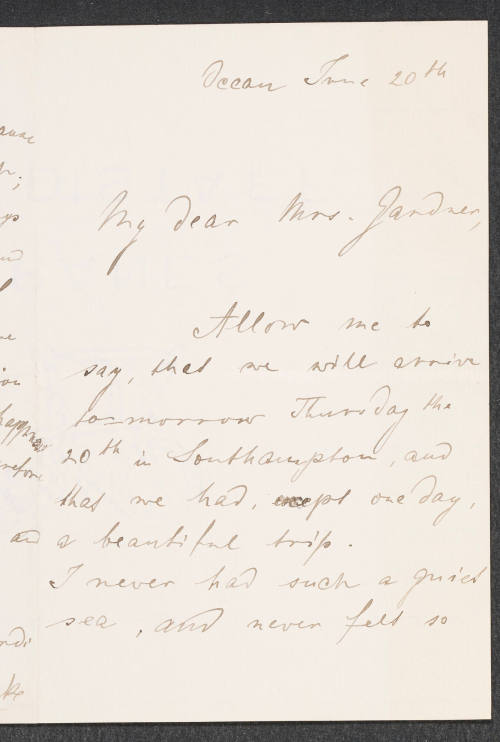 Ocean June 20th
My dear Mrs. Gardner,
Allow me to
say, that we will arrive
to=morrow Thursday the
20th in Southampton, and
that we had, except one day,
a beautiful trip.
I never had such a quiet
sea, and never felt so